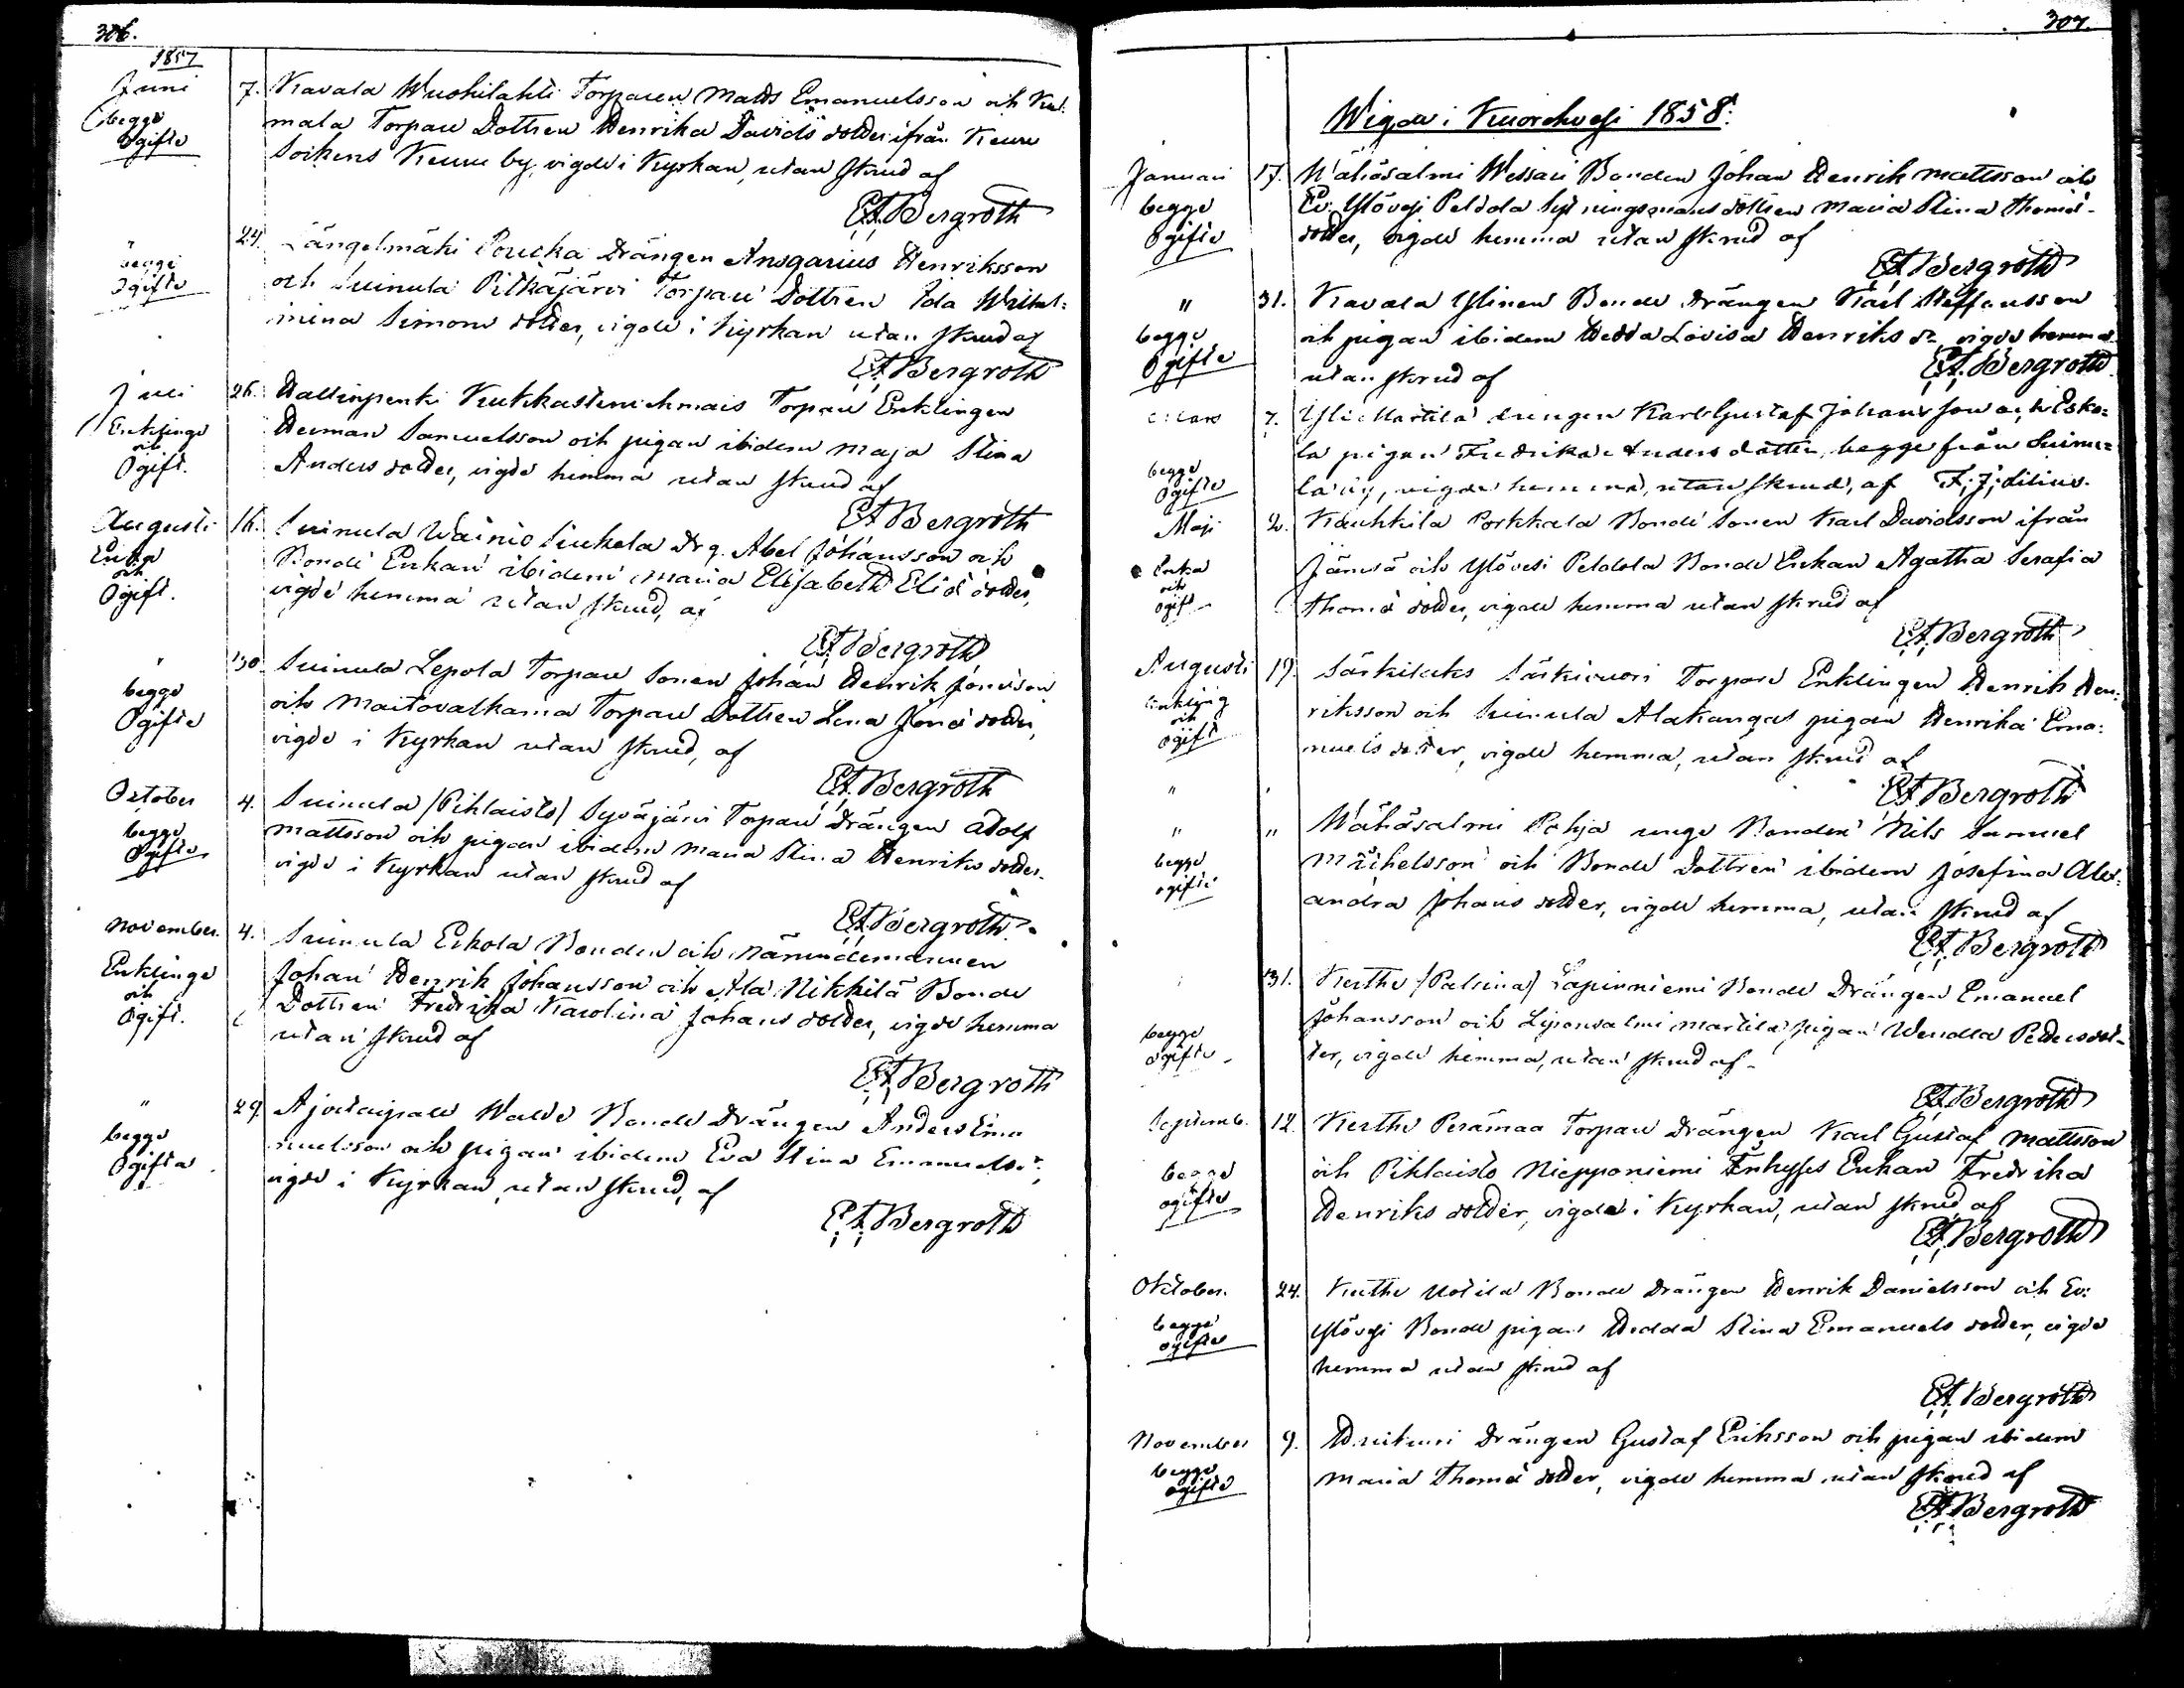 306.
1857
Juni 7. Kavala Wuohilahti Torparen Matts Emanuelsson och Kal:
begge mala Torpare Dottren Henrika Davids dotter ifrån Keuru
Ogifte Sockens Keuru by, vigde i Kyrkan, utan skrud af
E A Bergroth
" 24. Längelmäki Poucka Drängen Ansgarius Henriksson
begge och Suinula Pitkäjärvi Torpare Dottren Ida Wilhel:
Ogifte mina Simons dotter, vigde i Kyrkan utan skrud af
E A Bergroth
Juli 26. Hallinpenki Torpare Enklingen
Enklinge Herman Samuelsson och pigan ibidem Maja Stina
och Anders dotter, vigde hemma utan skrud af
Ogift.
E A Bergroth
Augusti 16. Suinula Wainio Drg. Abel Johansson och
Enka Bonde Enkan ibidem Maria Elisabeth Eliæ dotter,
och vigde hemma utan skrud, af
Ogift.
E A Bergroth
" 30 Suinula Lepola Torpare Sonen Johan Henrik Jonæson
begge och Maitovalkama Torpare Dottren Lena Jonæ dotter,
Ogifte vigde i Kyrkan utan skrud, af
E A Bergroth
October 4. Suinula (Pihlaisto) Syväjärvi Torpare Drängen Adolf
begge Mattsson och pigan ibidem Maria Stina Henriks dotter
Ogifte vigde i Kyrkan utan skrud af
E A Bergroth
November. 4. Suinula Erkola Bonden och nämndemannen
Enklinge Johan Henrik Johansson och Ala Nikkilä Bonde
och Dottren Fredrika Karolina Johans dotter, vigde hemma
Ogift. utan skrud af
E A Bergroth
" 29. Wald Bonde Drängen Anders Ema
begge nuelsson och pigan ibidem Eva Stina Emanuels dr.
Ogifta vigde i Kyrkan, utan skrud, af
E A Bergroth
307.
Wigde i Kuorehvesi 1858.
Januari 17. Wähäsalmi Wessari Bonden Johan Henrik Mattsson och
begge Ev: Ylövesi Peldola Sytningsmans dottren Maria Stina Thomæ
Ogifte dotter, vigde hemma utan skrud af
E A Bergroth
" 31. Kavala Ylinen Bonde Drängen Karl Steffansson
begge och pigan ibidem Hedda Lovisa Henriks dr. vigde hemma
Ogifte utan skrud af
E A Bergroth
Mars 7. Yli Martila drengen Karl Gustaf Johansson och Esko=
begge la pigan Fredrika Anders dotter, begge från Suinu=
Ogifte la by, vigde hemma, utan skrud, af F. J. Lilius.
Maji 2. Kauhkila Porkkala Bonde Sonen Karl Davidsson ifrån
Enka Jämsä och Ylövesi Peldola Bonde Enkan Agatha Serafia
och Thomæ dotter, vigde hemma utan skrud af
ogift
E A Bergroth
Augusti 19. Särkilaks Särkivuori Torpare Enklingen Henrik Hen:
Enkling riksson och Suinula Alakangas pigan Henrika Ema:
och nuels dotter, vigde hemma, utan skrud af
Ogift
E A Bergroth
" " Wähäsalmi Pohja unge Bonden Nils Samuel
begge Michelsson och Bonde Dottren ibidem Josefina Alex:
ogifte andra Johans dotter, vigde hemma, utan skrud af
E A Bergroth
31. Kerthe (Palsina) Lapinniemi Bonde Drängen Emanuel
begge Johansson och Liponsalmi Martila pigan Wendla Petters dot=
ogifte ter, vigde hemma, utan skrud af
E A Bergroth
Septemb. 12. Kerthe Perämaa Torpare Drängen Karl Gustaf Mattsson
begge och Pihlaisto Niepponiemi Inhyses Enkan Fredrika
ogifte Henriks dotter, vigde i Kyrkan, utan skrud, af
E A Bergroth
Oktober. 24. Kerthe Uotila Bonde Drängen Henrik Danielsson och Ev:
begge Ylövesi Bonde pigan Hedda Stina Emanuels dotter, vigde
ogifte hemma utan skrud af
E A Bergroth
November 9. Drängen Gustaf Eriksson och pigan ibidem
begge Maria Thomæ dotter, vigde hemma utan skrud af
ogifte
E A Bergroth